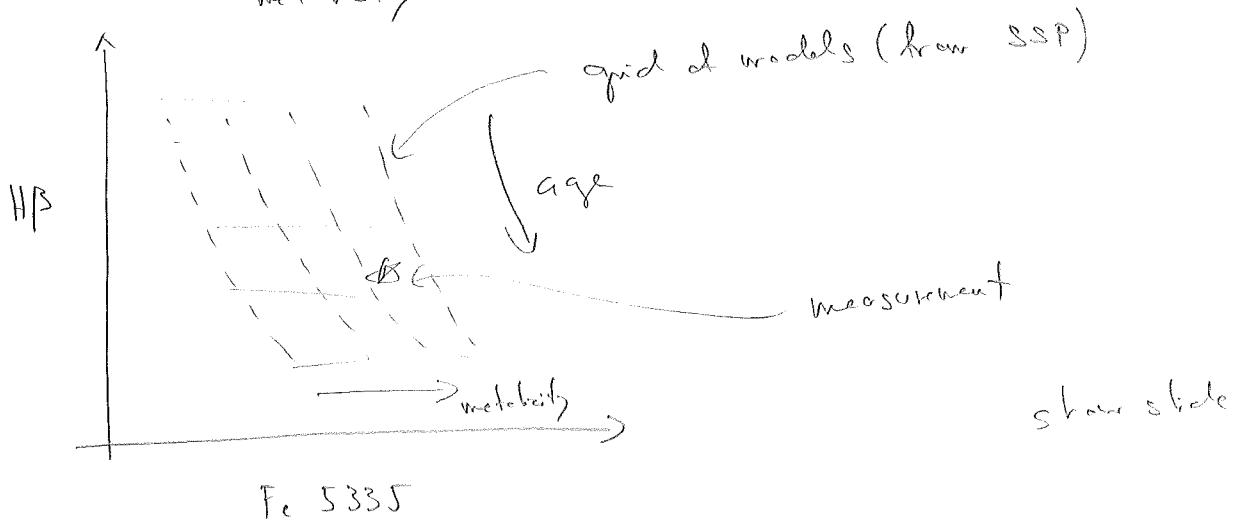 grid of models (from SSP)
age
Hβ
measurement
metalicity
show slide
Fe 5335